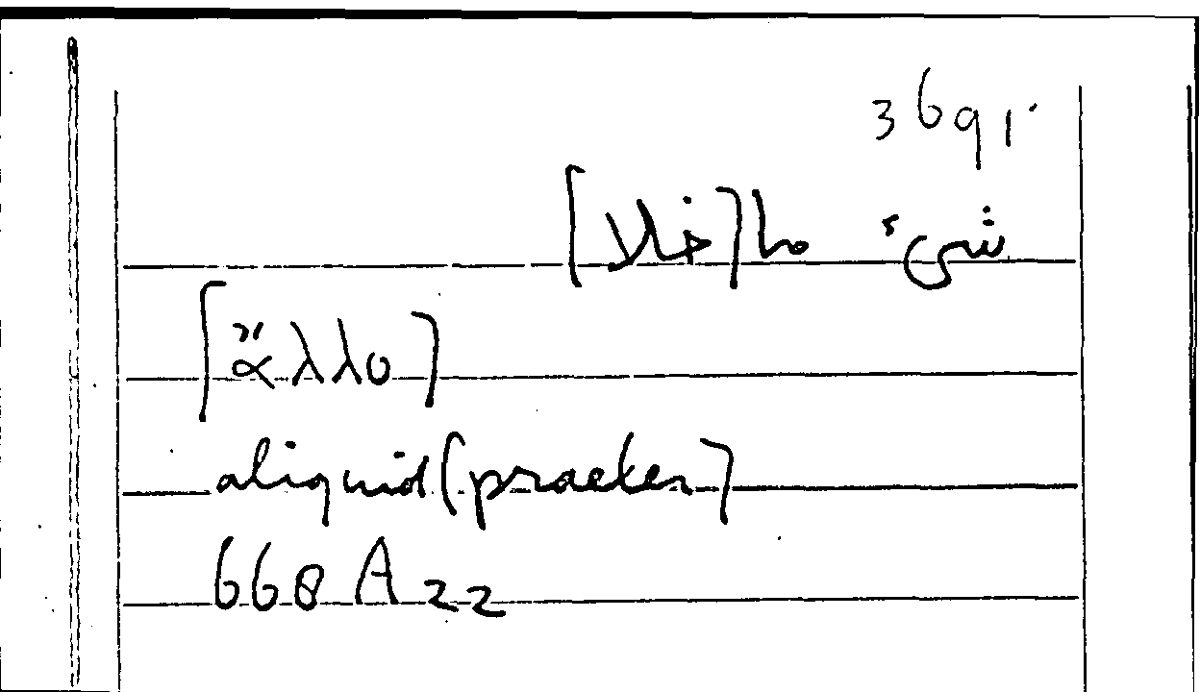 3691.
شىء ما [خلا]
[ἄλλο]
aliquid [praeter]
668 A 22